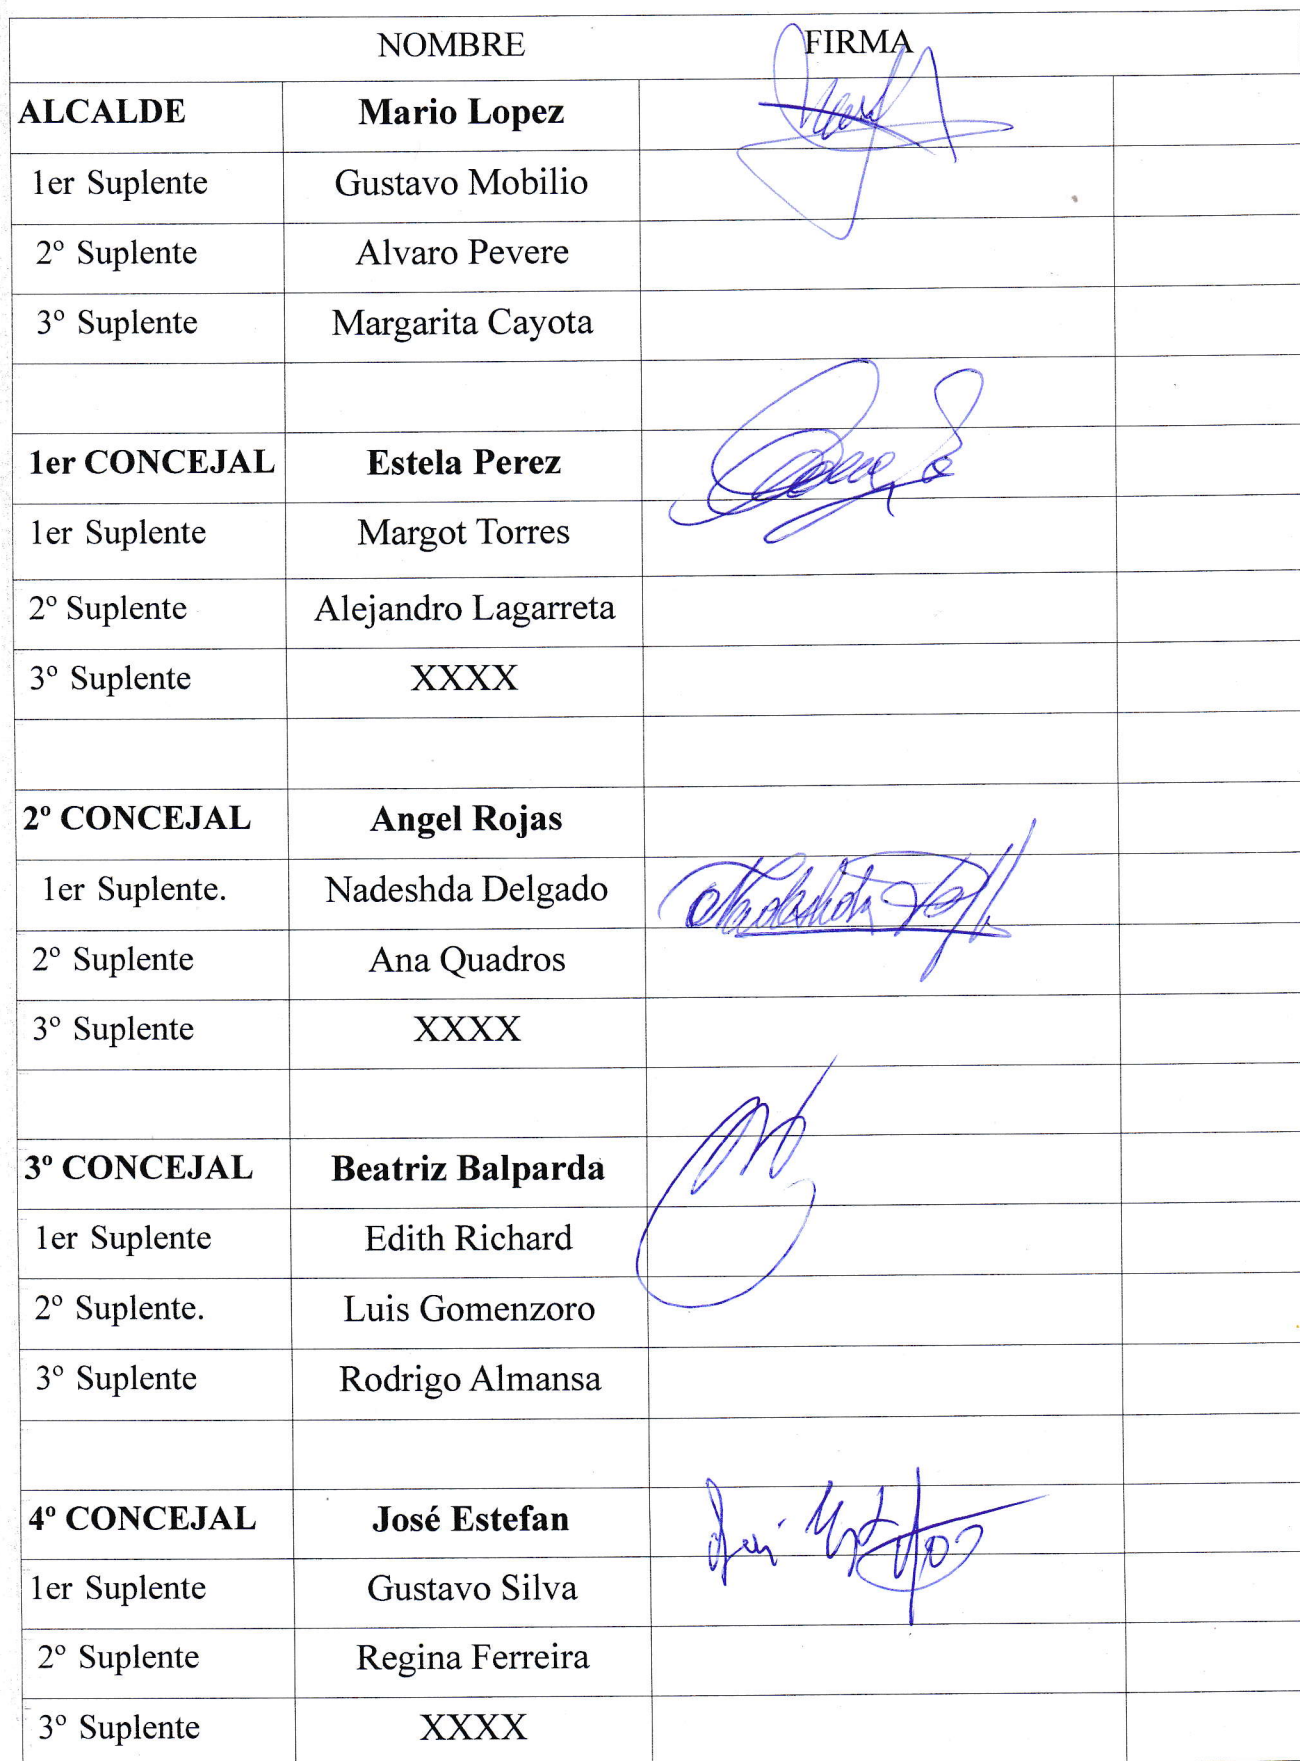 NOMBRE FIRMA
ALCALDE Mario Lopez
1er Suplente Gustavo Mobilio
2º Suplente Alvaro Pevere
3º Suplente Margarita Cayota
1er CONCEJAL Estela Perez
1er Suplente Margot Torres
2º Suplente Alejandro Lagarreta
3º Suplente XXXX
2º CONCEJAL Angel Rojas
1er Suplente. Nadeshda Delgado
2º Suplente Ana Quadros
3º Suplente XXXX
3º CONCEJAL Beatriz Balparda
1er Suplente Edith Richard
2º Suplente. Luis Gomenzoro
3º Suplente Rodrigo Almansa
4º CONCEJAL José Estefan
1er Suplente Gustavo Silva
2º Suplente Regina Ferreira
3º Suplente XXXX